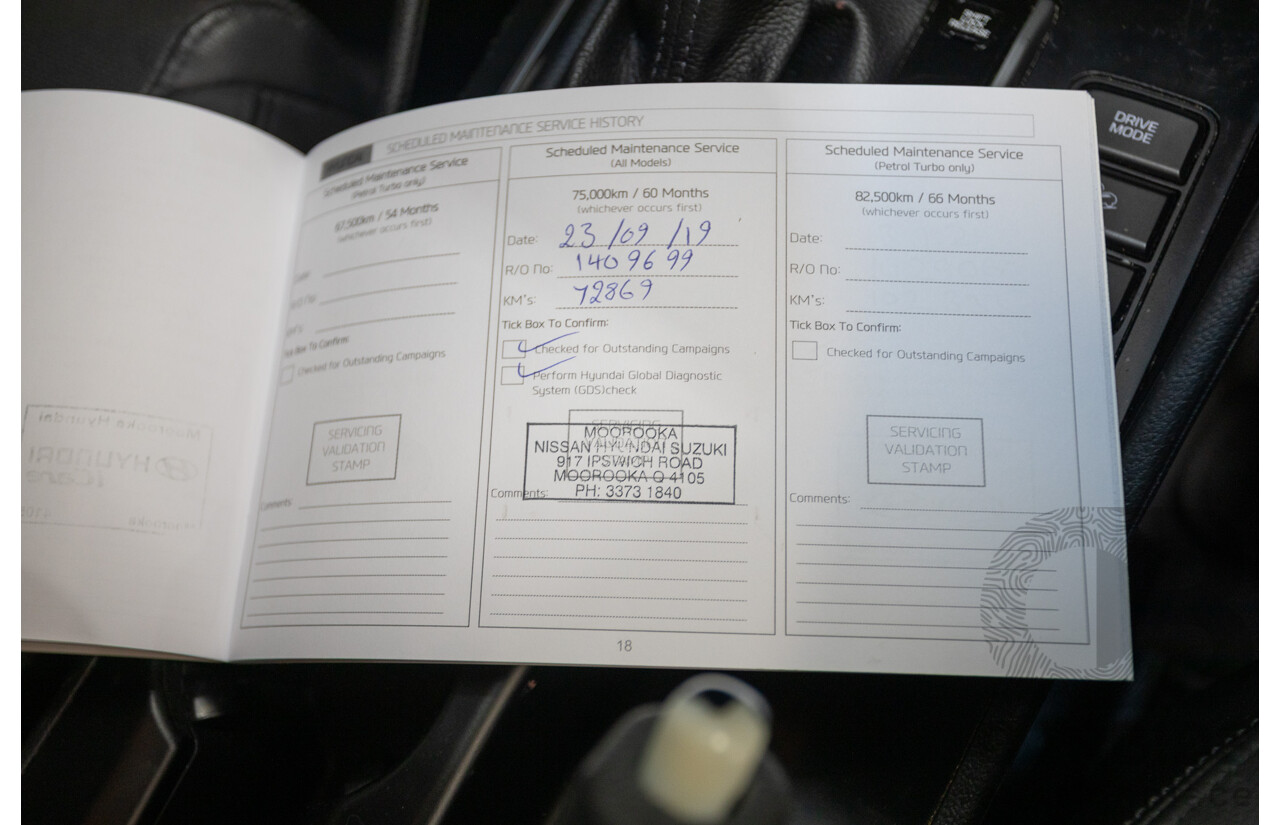 SHIFT
LOCK
RELEASE
DRIVE
MODE
SCHEDULED MAINTENANCE SERVICE HISTORY
Scheduled Maintenance Service
(Petrol Turbo only)
67,500km / 54 Months
(whichever occurs first)
Tick Box To Confirm
Checked for Outstanding Campaigns
SERVICING
VALIDATION
STAMP
Comments:
Scheduled Maintenance Service
(All Models)
75,000km / 60 Months
(whichever occurs first)
Date: 23/09/19
R/O No: 1409699
KM's: 72869
Tick Box To Confirm:
Checked for Outstanding Campaigns
Perform Hyundai Global Diagnostic
System (GDS)check
SERVICING
MOOROOKA
NISSAN HYUNDAI SUZUKI
917 IPSWICH ROAD
MOOROOKA Q 4105
PH: 3373 1840
Comments:
Scheduled Maintenance Service
(Petrol Turbo only)
82,500km / 66 Months
(whichever occurs first)
Date:
R/O No:
KM's:
Tick Box To Confirm:
Checked for Outstanding Campaigns
SERVICING
VALIDATION
STAMP
Comments:
18
Moorooka Hyundai
HYUNDAI
iCare
Moorooka